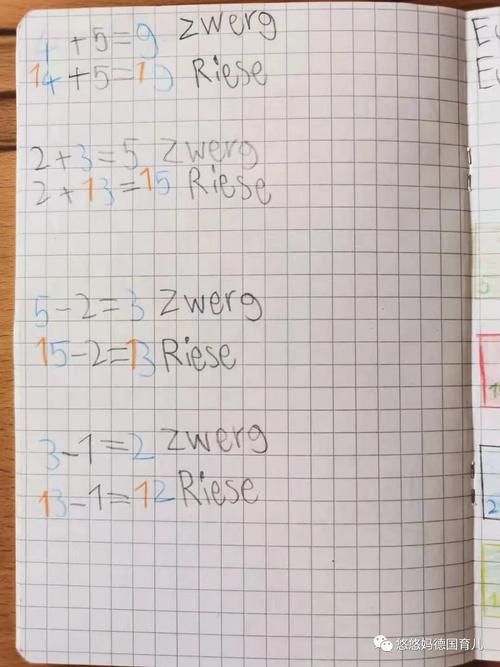 4 + 5 = 9 Zwerg
14 + 5 = 19 Riese
2 + 3 = 5 Zwerg
2 + 13 = 15 Riese
5 - 2 = 3 Zwerg
15 - 2 = 13 Riese
3 - 1 = 2 Zwerg
13 - 1 = 12 Riese
2
悠悠妈德国育儿